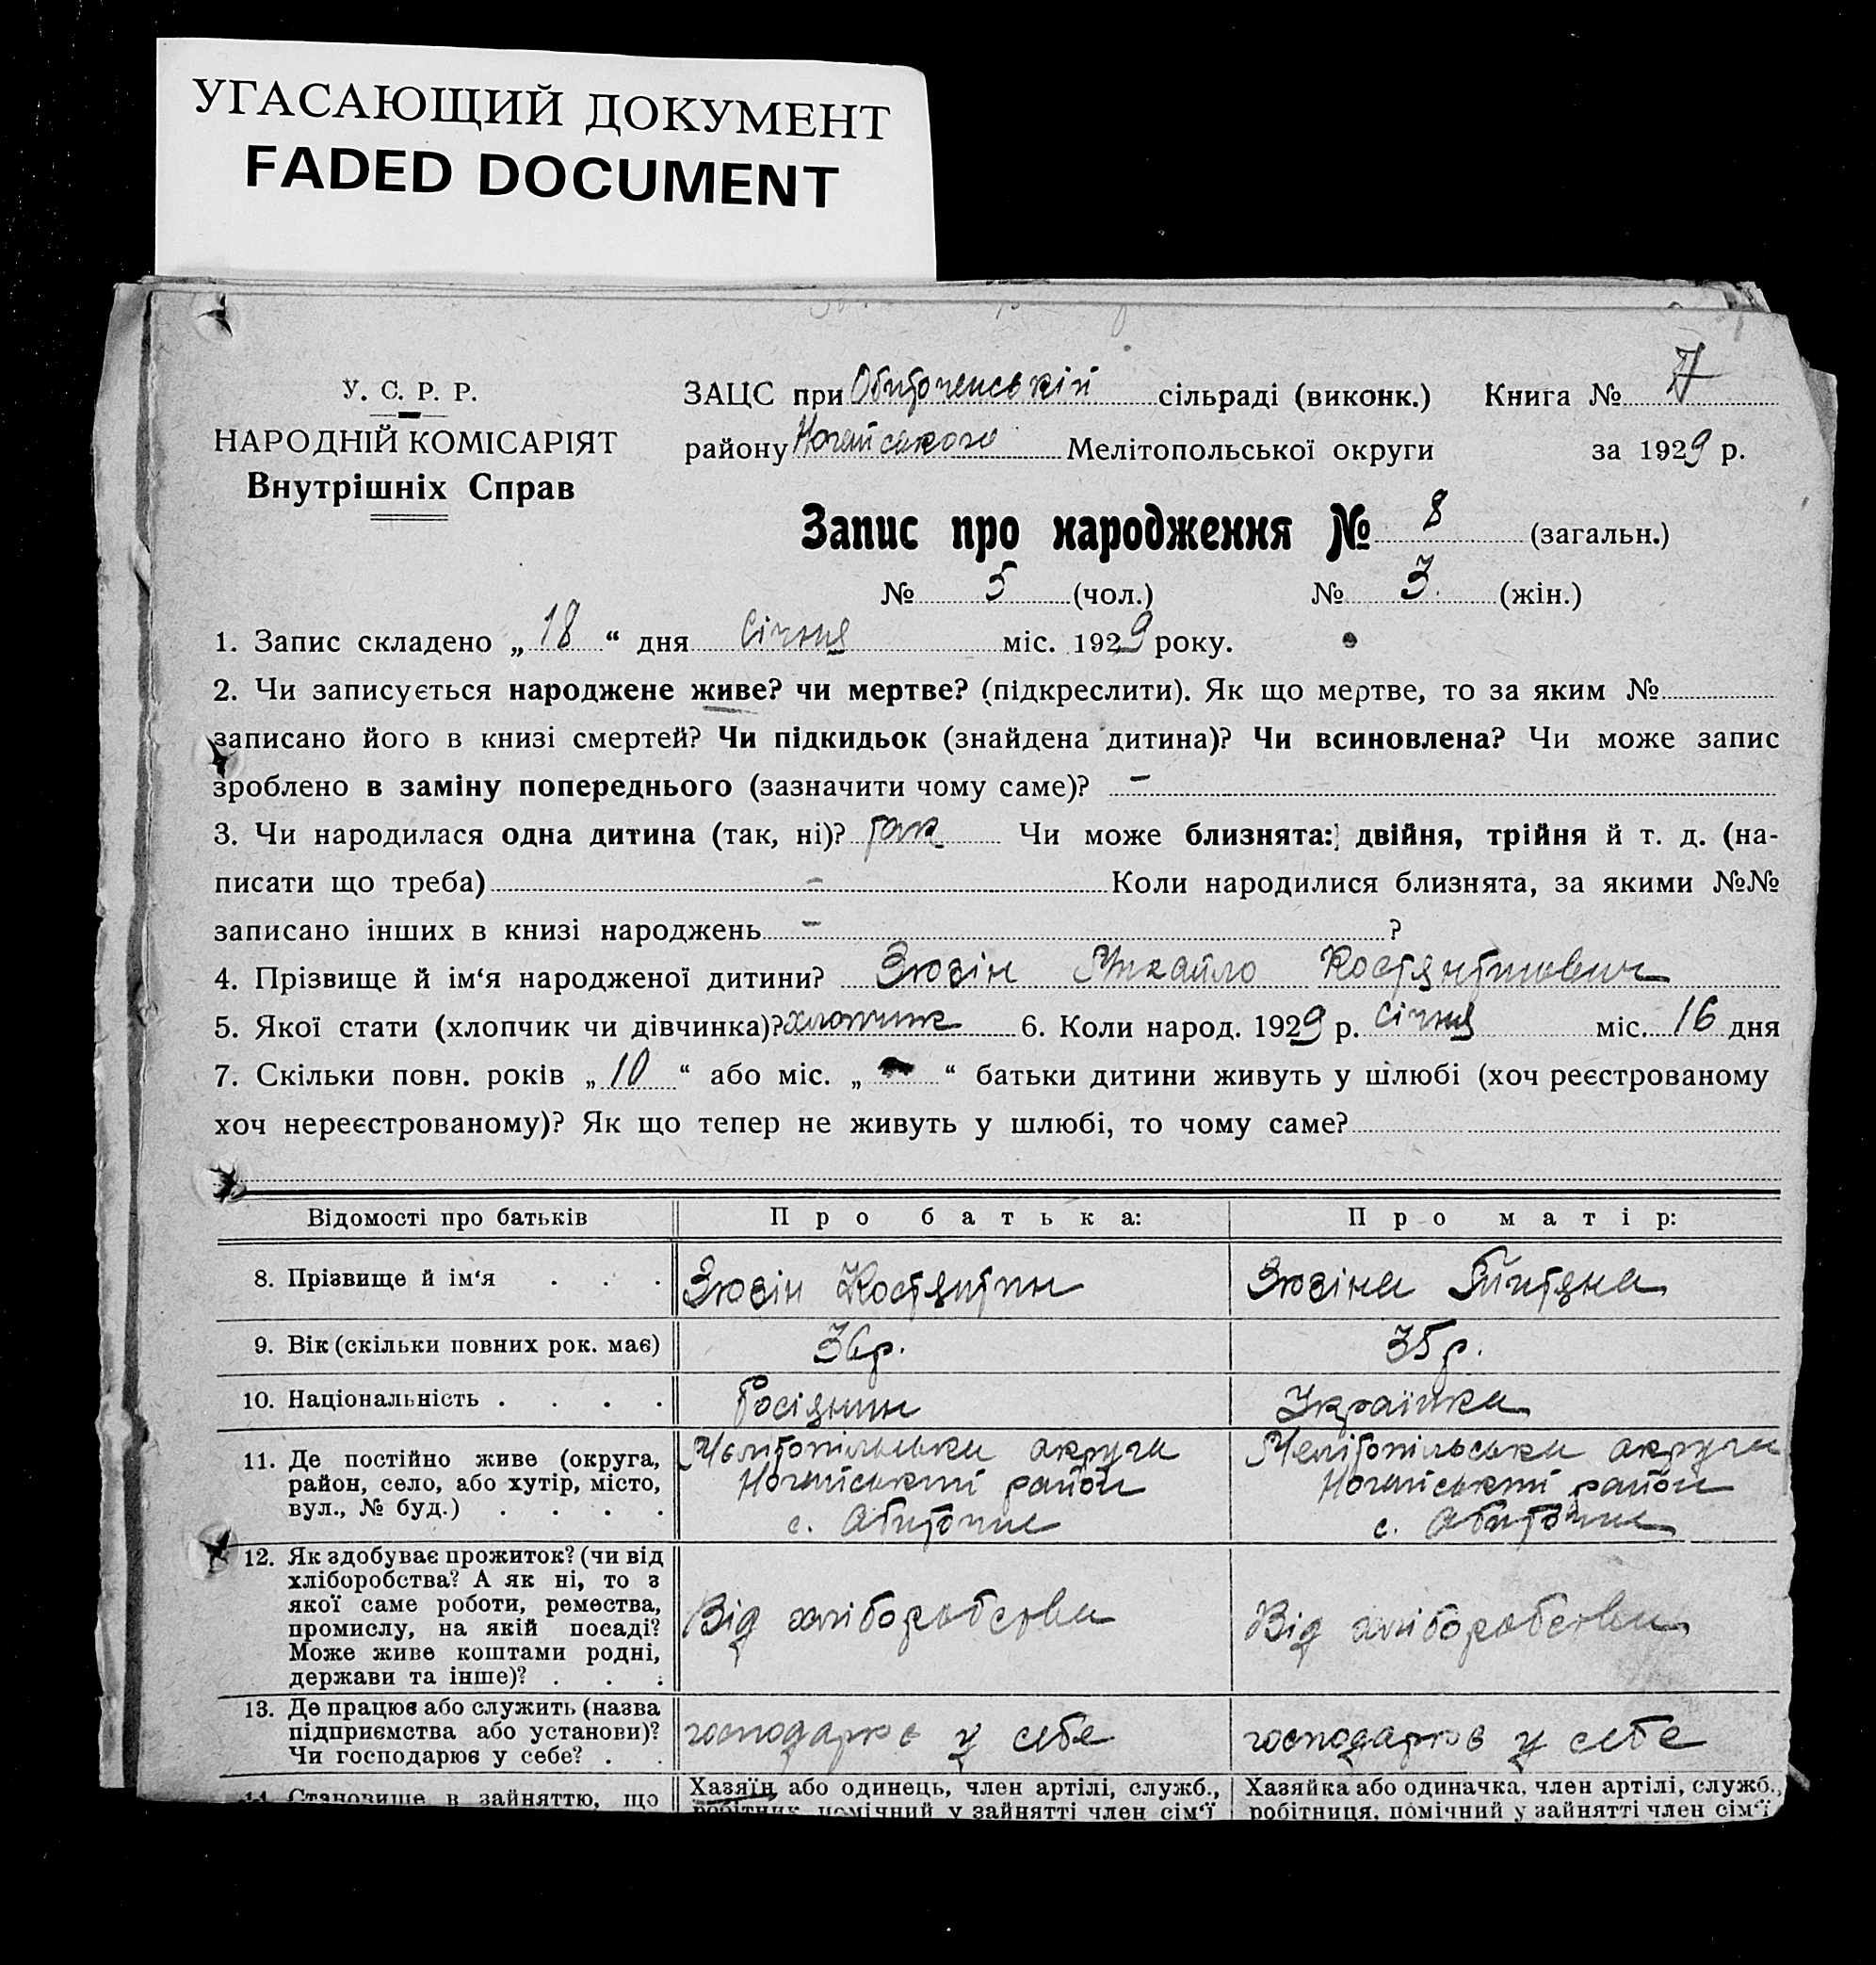 УГАСАЮЩИЙ ДОКУМЕНТ
FADED DOCUMENT
У. С. Р. Р.
НАРОДНІЙ КОМІСАРІЯТ
Внутрішніх Справ
ЗАЦС при Обиточенській сільраді (виконк.) Книга №
району Ногайського Мелітопольської округи за 1929 р.
Запис про народження № 8 (загальн.)
№ 5 (чол.) № 3 (жін.)
1. Запис складено „ 18 “ дня січня міс. 1929 року.
2. Чи записується народжене живе? чи мертве? (підкреслити). Як що мертве, то за яким №
записано його в книзі смертей? Чи підкидьок (знайдена дитина)? Чи всиновлена? Чи може запис
зроблено в заміну попереднього (зазначити чому саме)? –
3. Чи народилася одна дитина (так, ні)? так Чи може близнята: двійня, трійня й т. д. (на-
писати що треба) – Коли народилися близнята, за якими №№
записано інших в книзі народжень – ?
4. Прізвище й ім‘я народженої дитини? Зюзін Михайло Костянтинович
5. Якої стати (хлопчик чи дівчинка)? хлопчик 6. Коли народ. 1929 р. січня міс. 16 дня
7. Скільки повн. років „ 10 “ або міс. „ “ батьки дитини живуть у шлюбі (хоч реєстрованому
хоч нереєстрованому)? Як що тепер не живуть у шлюбі, то чому саме?
Відомості про батьків Про батька: Про матір:
8. Прізвище й ім‘я . . . Зюзін Костянтин Зюзіна Титяна
9. Вік (скільки повних рок. має) 36 р. 35 р.
10. Національність . . . . Росіянин Українка
11. Де постійно живе (округа, Мелітопільська округа Мелітопільська округа
район, село, або хутір, місто, Ногайський район Ногайський район
вул., № буд.) . . . . с. Абиточне с. Абиточне
12. Як здобуває прожиток? (чи від
хліборобства? А як ні, то з
якої саме роботи, ремества, Від хліборобства Від хліборобства
промислу, на якій посаді?
Може живе коштами родні,
держави та інше)? . . .
13. Де працює або служить (назва
підприємства або установи)? господарює у себе господарює у себе
Чи господарює у себе? . .
14. Становище в зайняттю, що Хазяїн або одинець, член артілі, служб., Хазяйка або одиначка, член артілі, служб.,
робітник, помічний у зайнятті член сім‘ї робітниця, помічний у зайнятті член сім‘ї